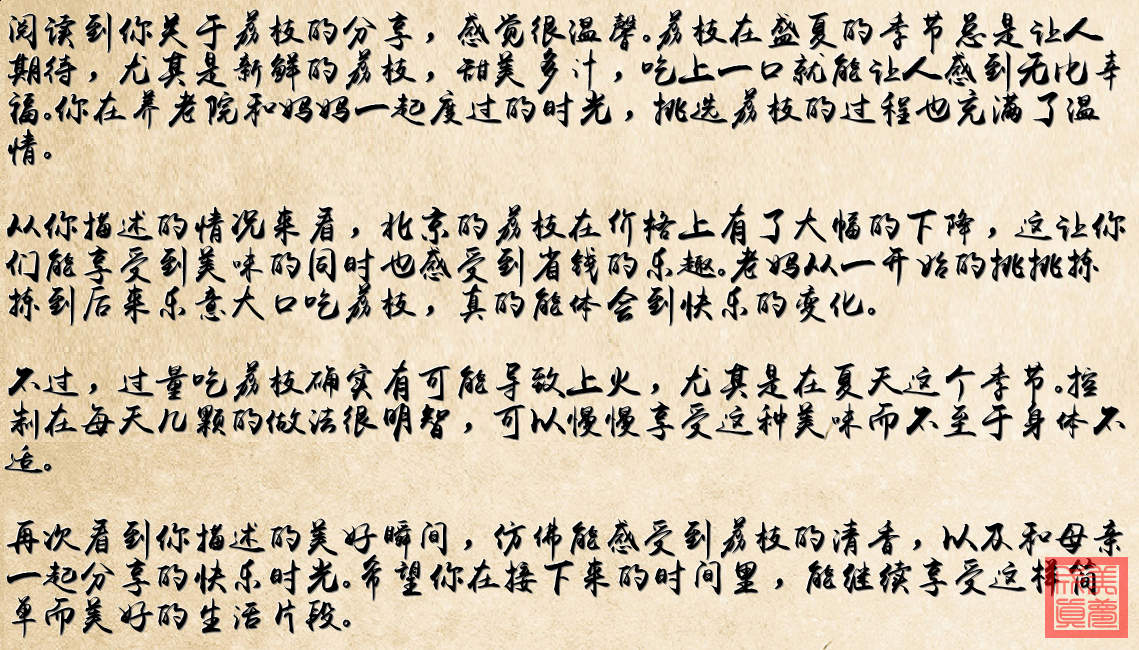 阅读到你关于荔枝的分享，感觉很温馨。荔枝在盛夏的季节总是让人
期待，尤其是新鲜的荔枝，甜美多汁，吃上一口就能让人感到无比幸
福。你在养老院和妈妈一起度过的时光，挑选荔枝的过程也充满了温
情。
从你描述的情况来看，北京的荔枝在价格上有了大幅的下降，这让你
们能享受到美味的同时也感受到省钱的乐趣。老妈从一开始的挑挑拣
拣到后来乐意大口吃荔枝，真的能体会到快乐的变化。
不过，过量吃荔枝确实有可能导致上火，尤其是在夏天这个季节。控
制在每天几颗的做法很明智，可以慢慢享受这种美味而不至于身体不
适。
再次看到你描述的美好瞬间，仿佛能感受到荔枝的清香，以及和母亲
一起分享的快乐时光。希望你在接下来的时间里，能继续享受这样简
单而美好的生活片段。